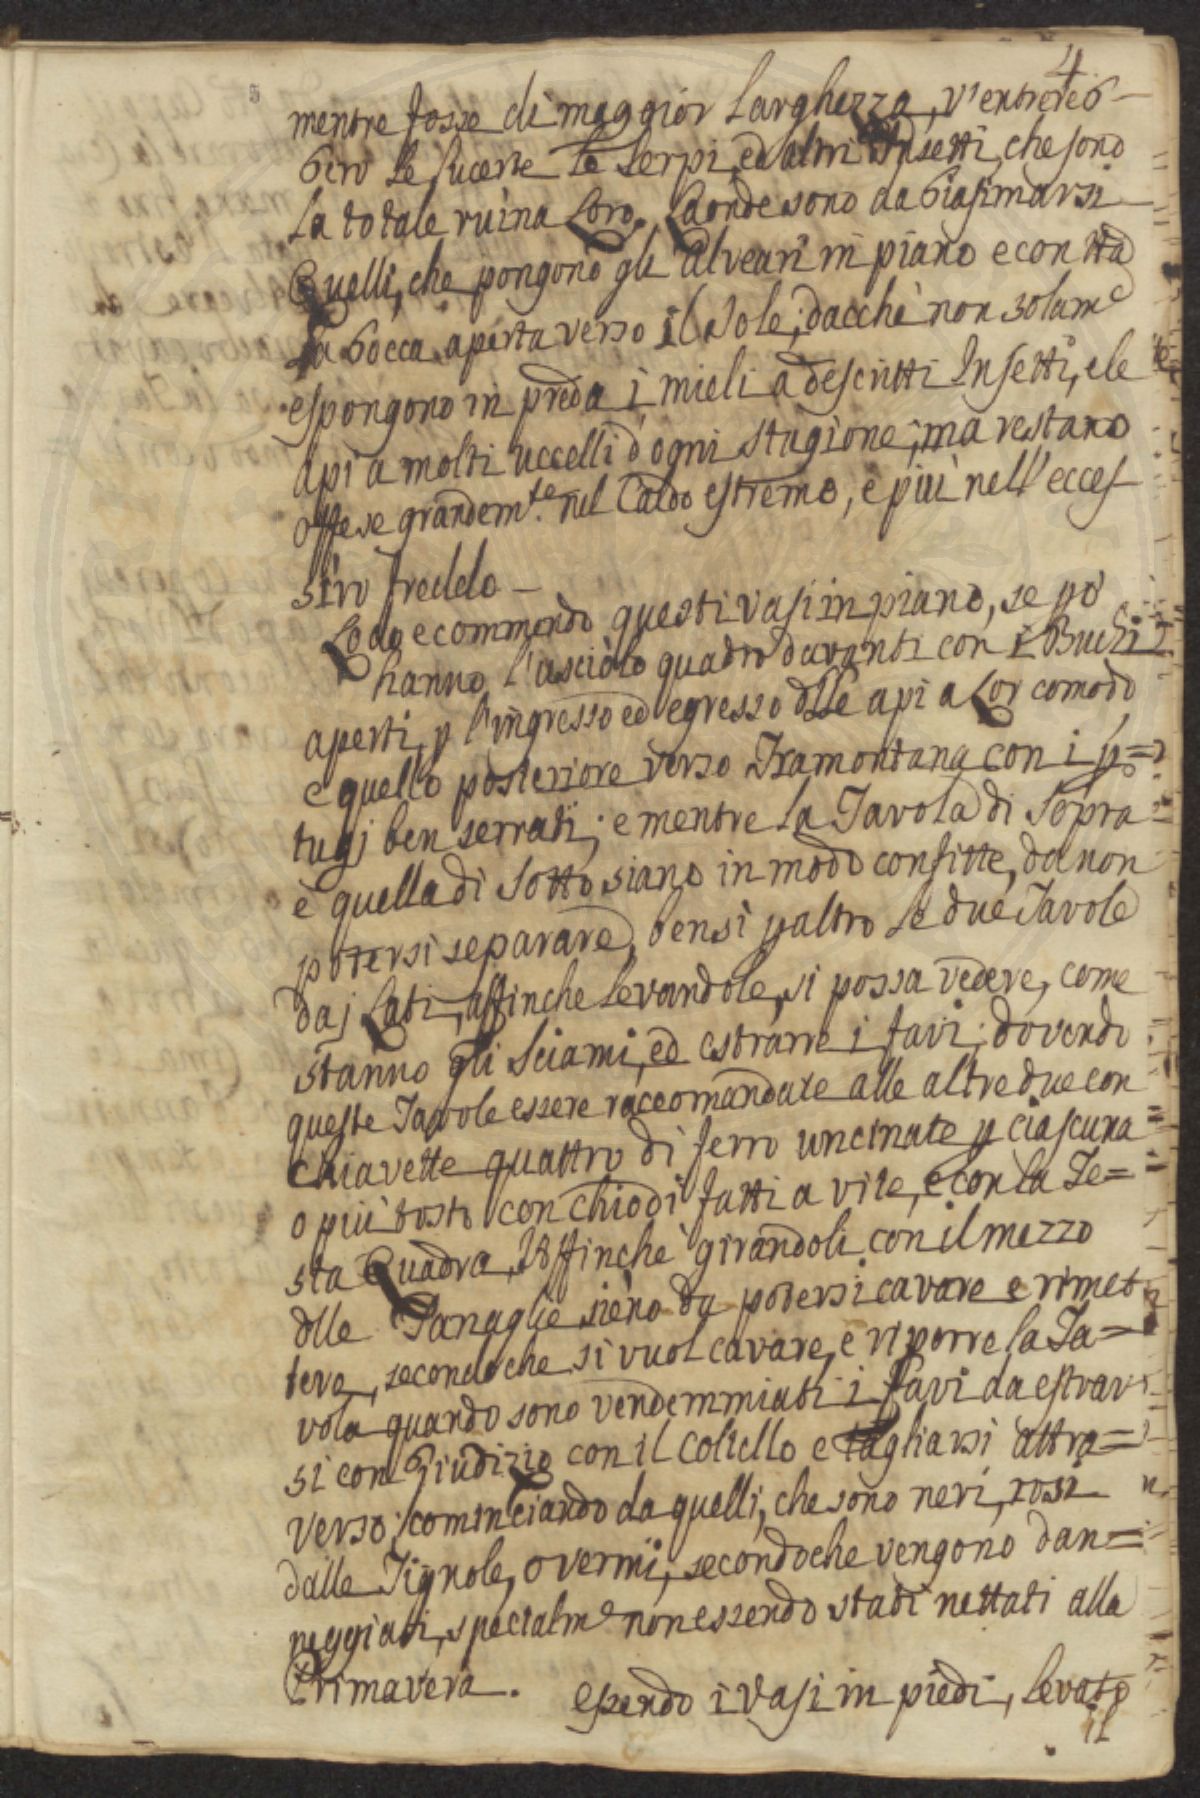 4
5
mentre fosse di maggior larghezza, v'entrereb-
bero le lucerte le serpi, ed altri Insetti, che sono
la totale ruina loro. Laonde sono da biasimarsi
Quelli, che pongono gli alveari in piano e con tta
la bocca aperta verso il Sole; dacchè non solam.e
espongono in preda i mieli a descritti Insetti, e le
api a molti uccelli d'ogni stagione; ma restano
offese grandem.te nel Caldo estremo, e più nell'ecces-
sivo freddo -
Lodo e commendo questi vasi in piano, se pò
hanno l'asciolo quadro davanti con i Buchi
aperti, p l'ingresso ed egresso dlle api a lor comodo,
e quello posteriore verso Tramontana con i p=
tugj ben serrati; e mentre la Tavola di Sopra
e quella di Sotto siano in modo confitte, da non
potersi separare, bensi p altro le due Tavole
daj Lati, affinche levandole, si possa vedere, come
stanno gli Sciami, ed estrarre i favi; dovendo
queste Tavole essere raccomandate alle altre due con
chiavette quattro di ferro uncinate p ciascuna
o più tosto con chiodi fatti a vite, e con la Te=
sta Quadra, Affinchè girandoli con il mezzo
dlle Tanaglie sieno da potersi cavare e rimet
tere, secondo che si vuol cavare, e riporre la Ta=
vola quando sono vendemmiati i favi da estrar
si con Giudizio con il coltello e tagliarsi attra=
verso; cominciando da quelli, che sono neri, rosi
dalle Tignole, o vermi, secondoche vengono dan=
neggiati, specialm.e non essendo stati nettati alla
Primavera. Essendo i Vasi in piedi, levato
il